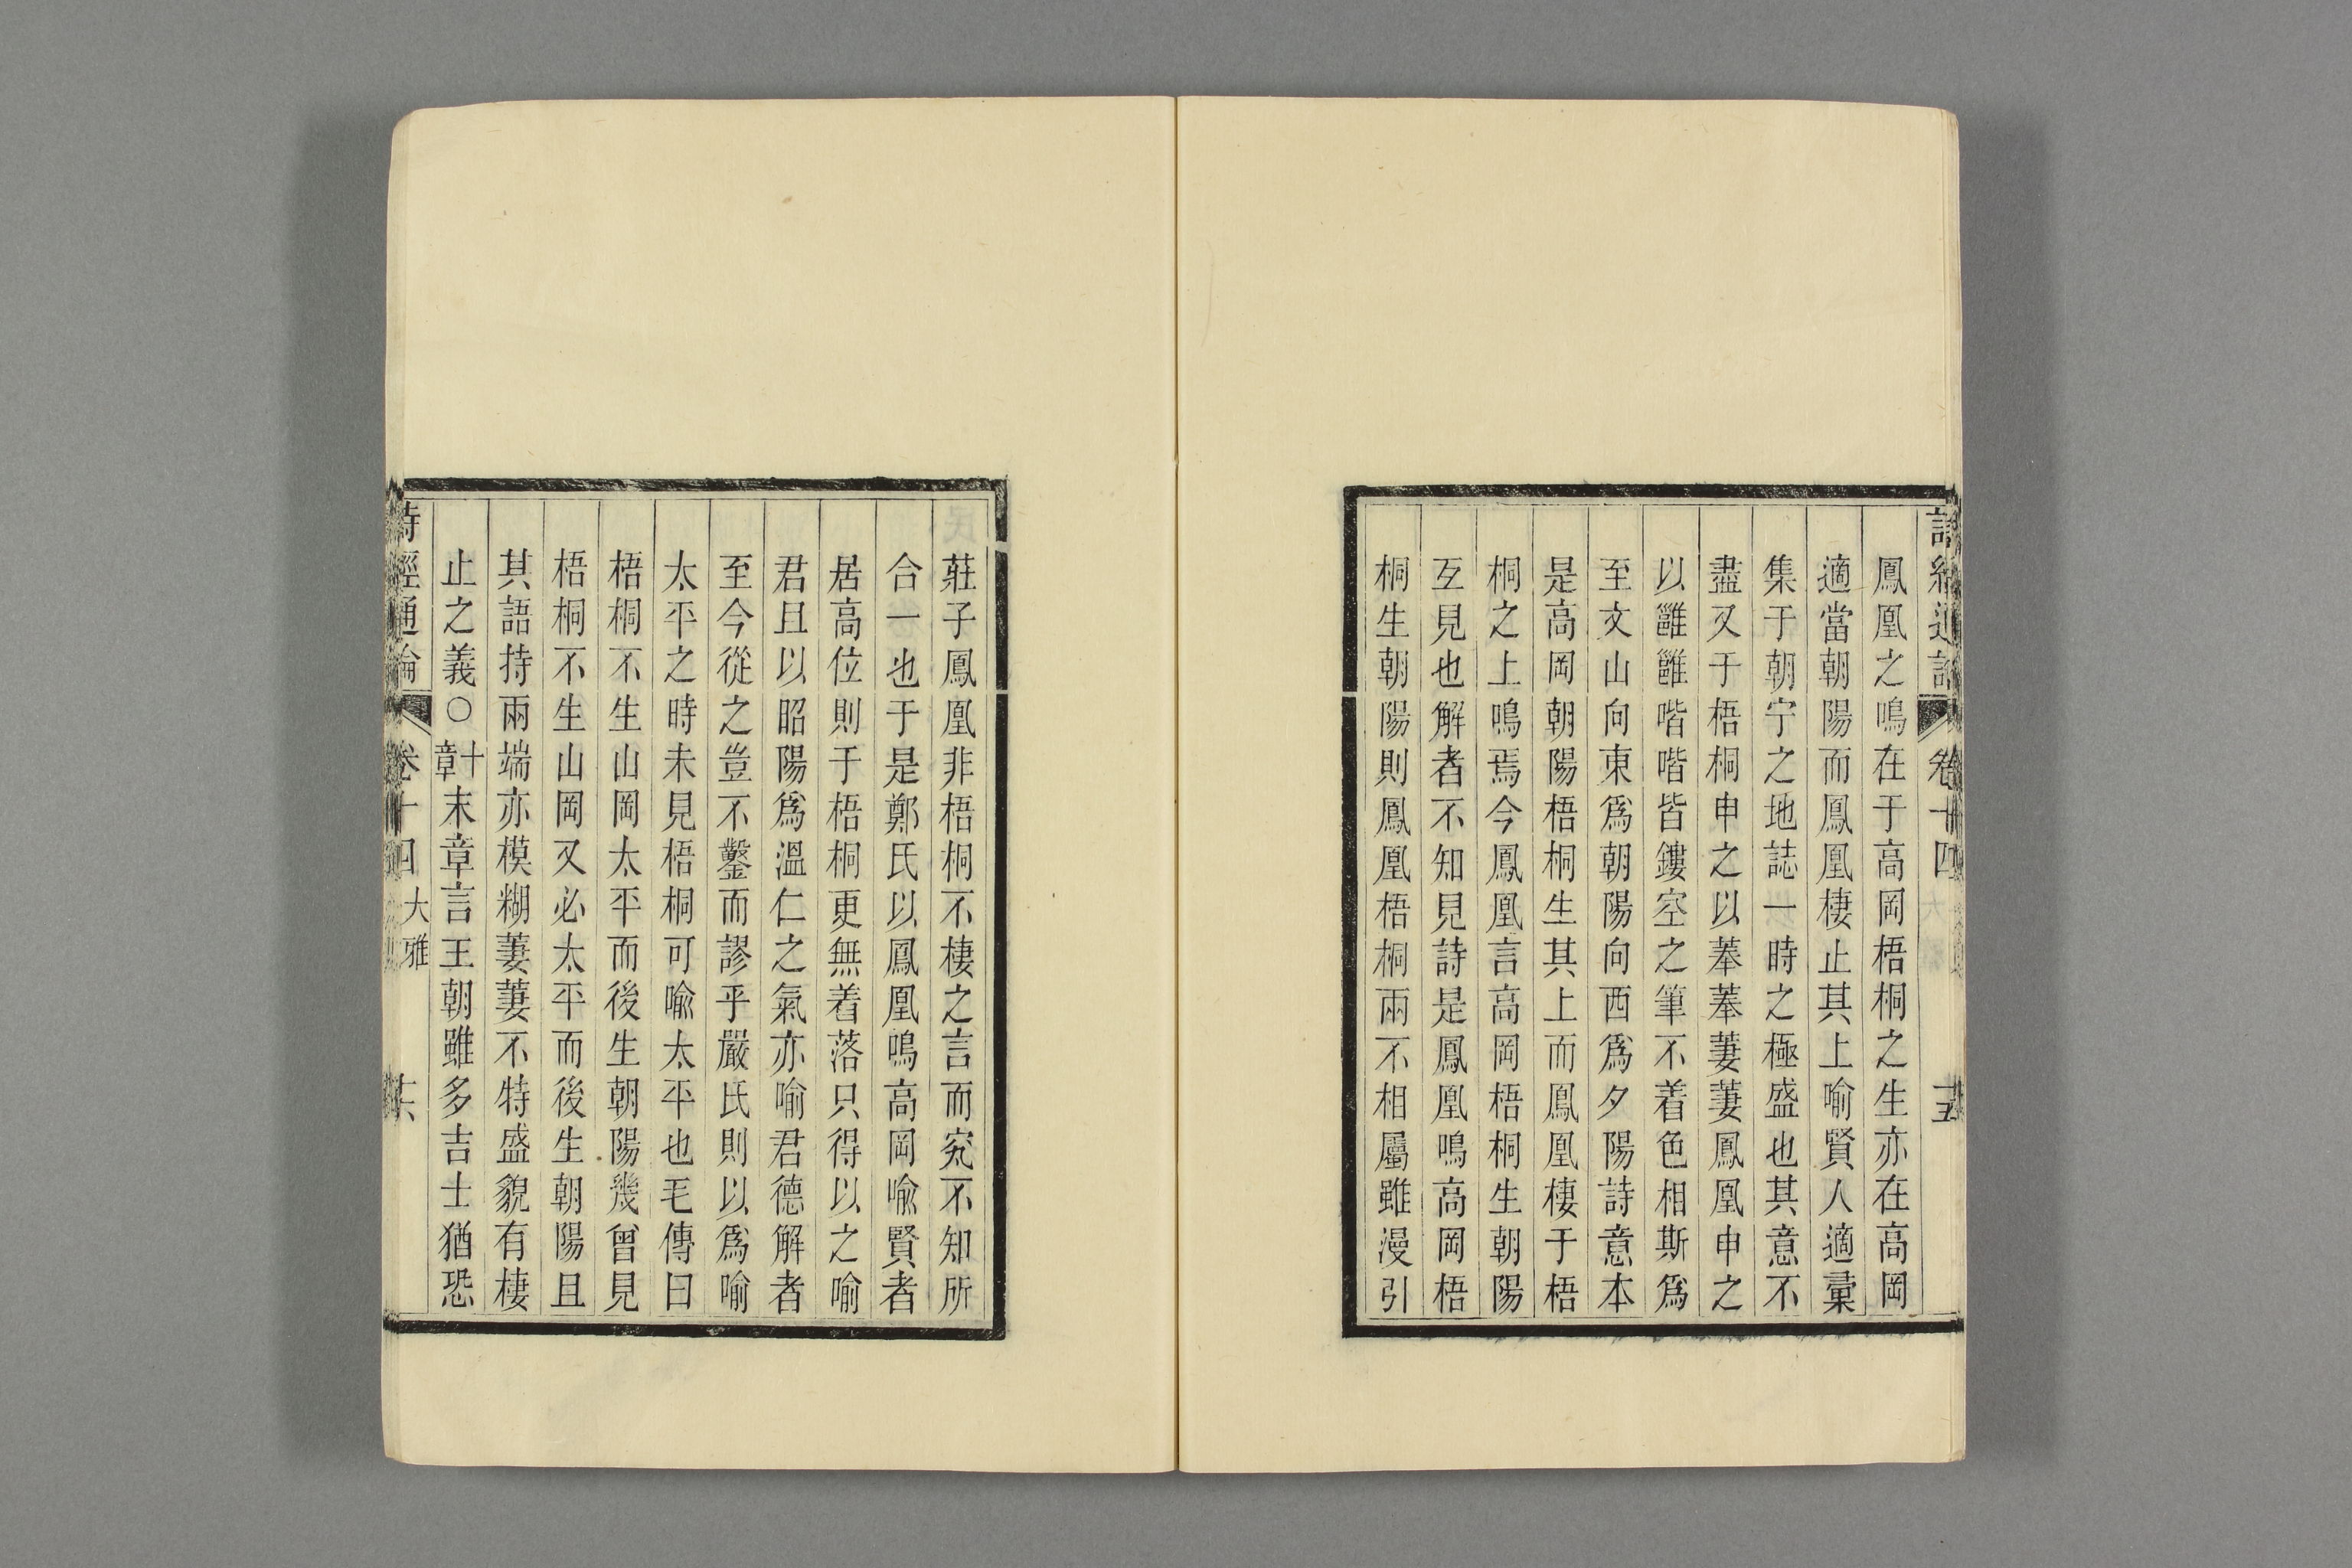 鳳凰之鳴在于高岡梧桐之生亦在高岡
適當朝陽而鳳凰棲止其上喻賢人適彙
集于朝宁之地誌一時之極盛也其意不
盡又于梧桐申之以菶菶萋萋鳳凰申之
以雝雝喈喈皆鏤空之筆不着色相斯爲
至文山向東爲朝陽向西爲夕陽詩意本
是高岡朝陽梧桐生其上而鳳凰棲于梧
桐之上鳴焉今鳳凰言高岡梧桐生朝陽
互見也解者不知見詩是鳳凰鳴高岡梧
桐生朝陽則鳳凰梧桐兩不相屬雖漫引
莊子鳳凰非梧桐不棲之言而究不知所
合一也于是鄭氏以鳳凰鳴高岡喻賢者
居高位則于梧桐更無着落只得以之喻
君且以昭陽爲溫仁之氣亦喻君德解者
至今從之豈不鑿而謬乎嚴氏則以爲喻
太平之時未見梧桐可喻太平也毛傳曰
梧桐不生山岡太平而後生朝陽幾曾見
梧桐不生山岡又必太平而後生朝陽且
其語持兩端亦模糊萋萋不特盛貌有棲
止之義○十章末章言王朝雖多吉士猶恐
詩經通論 卷十四 大雅